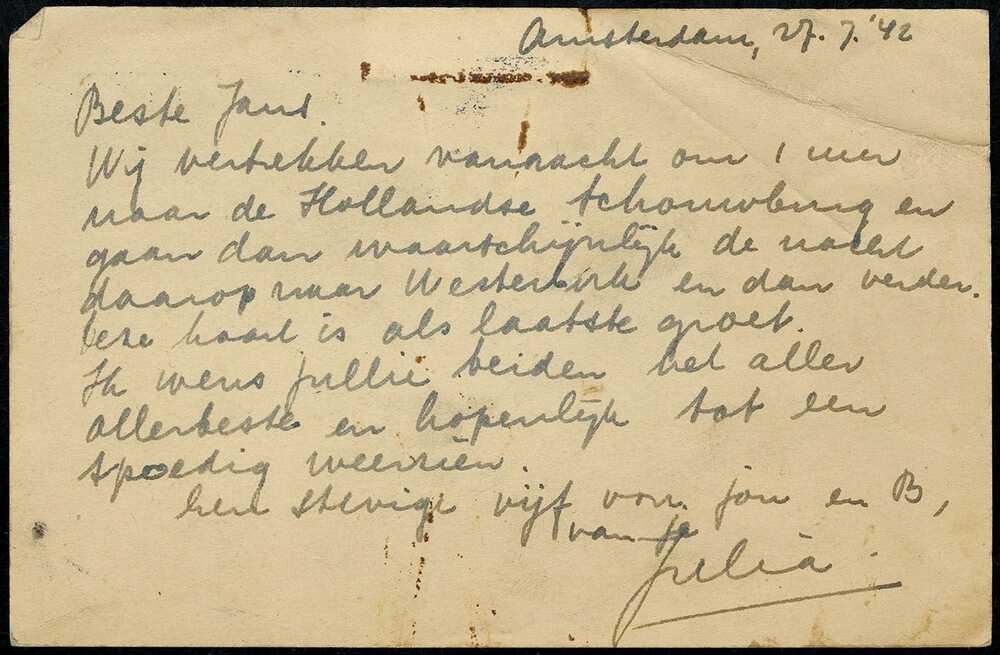 Amsterdam, 27.7.'42
Beste Jans.
Wij vertrekken vannacht om 1 uur
naar de Hollandse Schouwburg en
gaan dan waarschijnlijk de nacht
daarop naar Westerbork en dan verder.
Deze kaart is als laatste groet.
Ik wens jullie beiden het aller
allerbeste en hopenlijk tot een
spoedig weerziën.
Een stevige vijf voor jou en B,
van je
Julia.